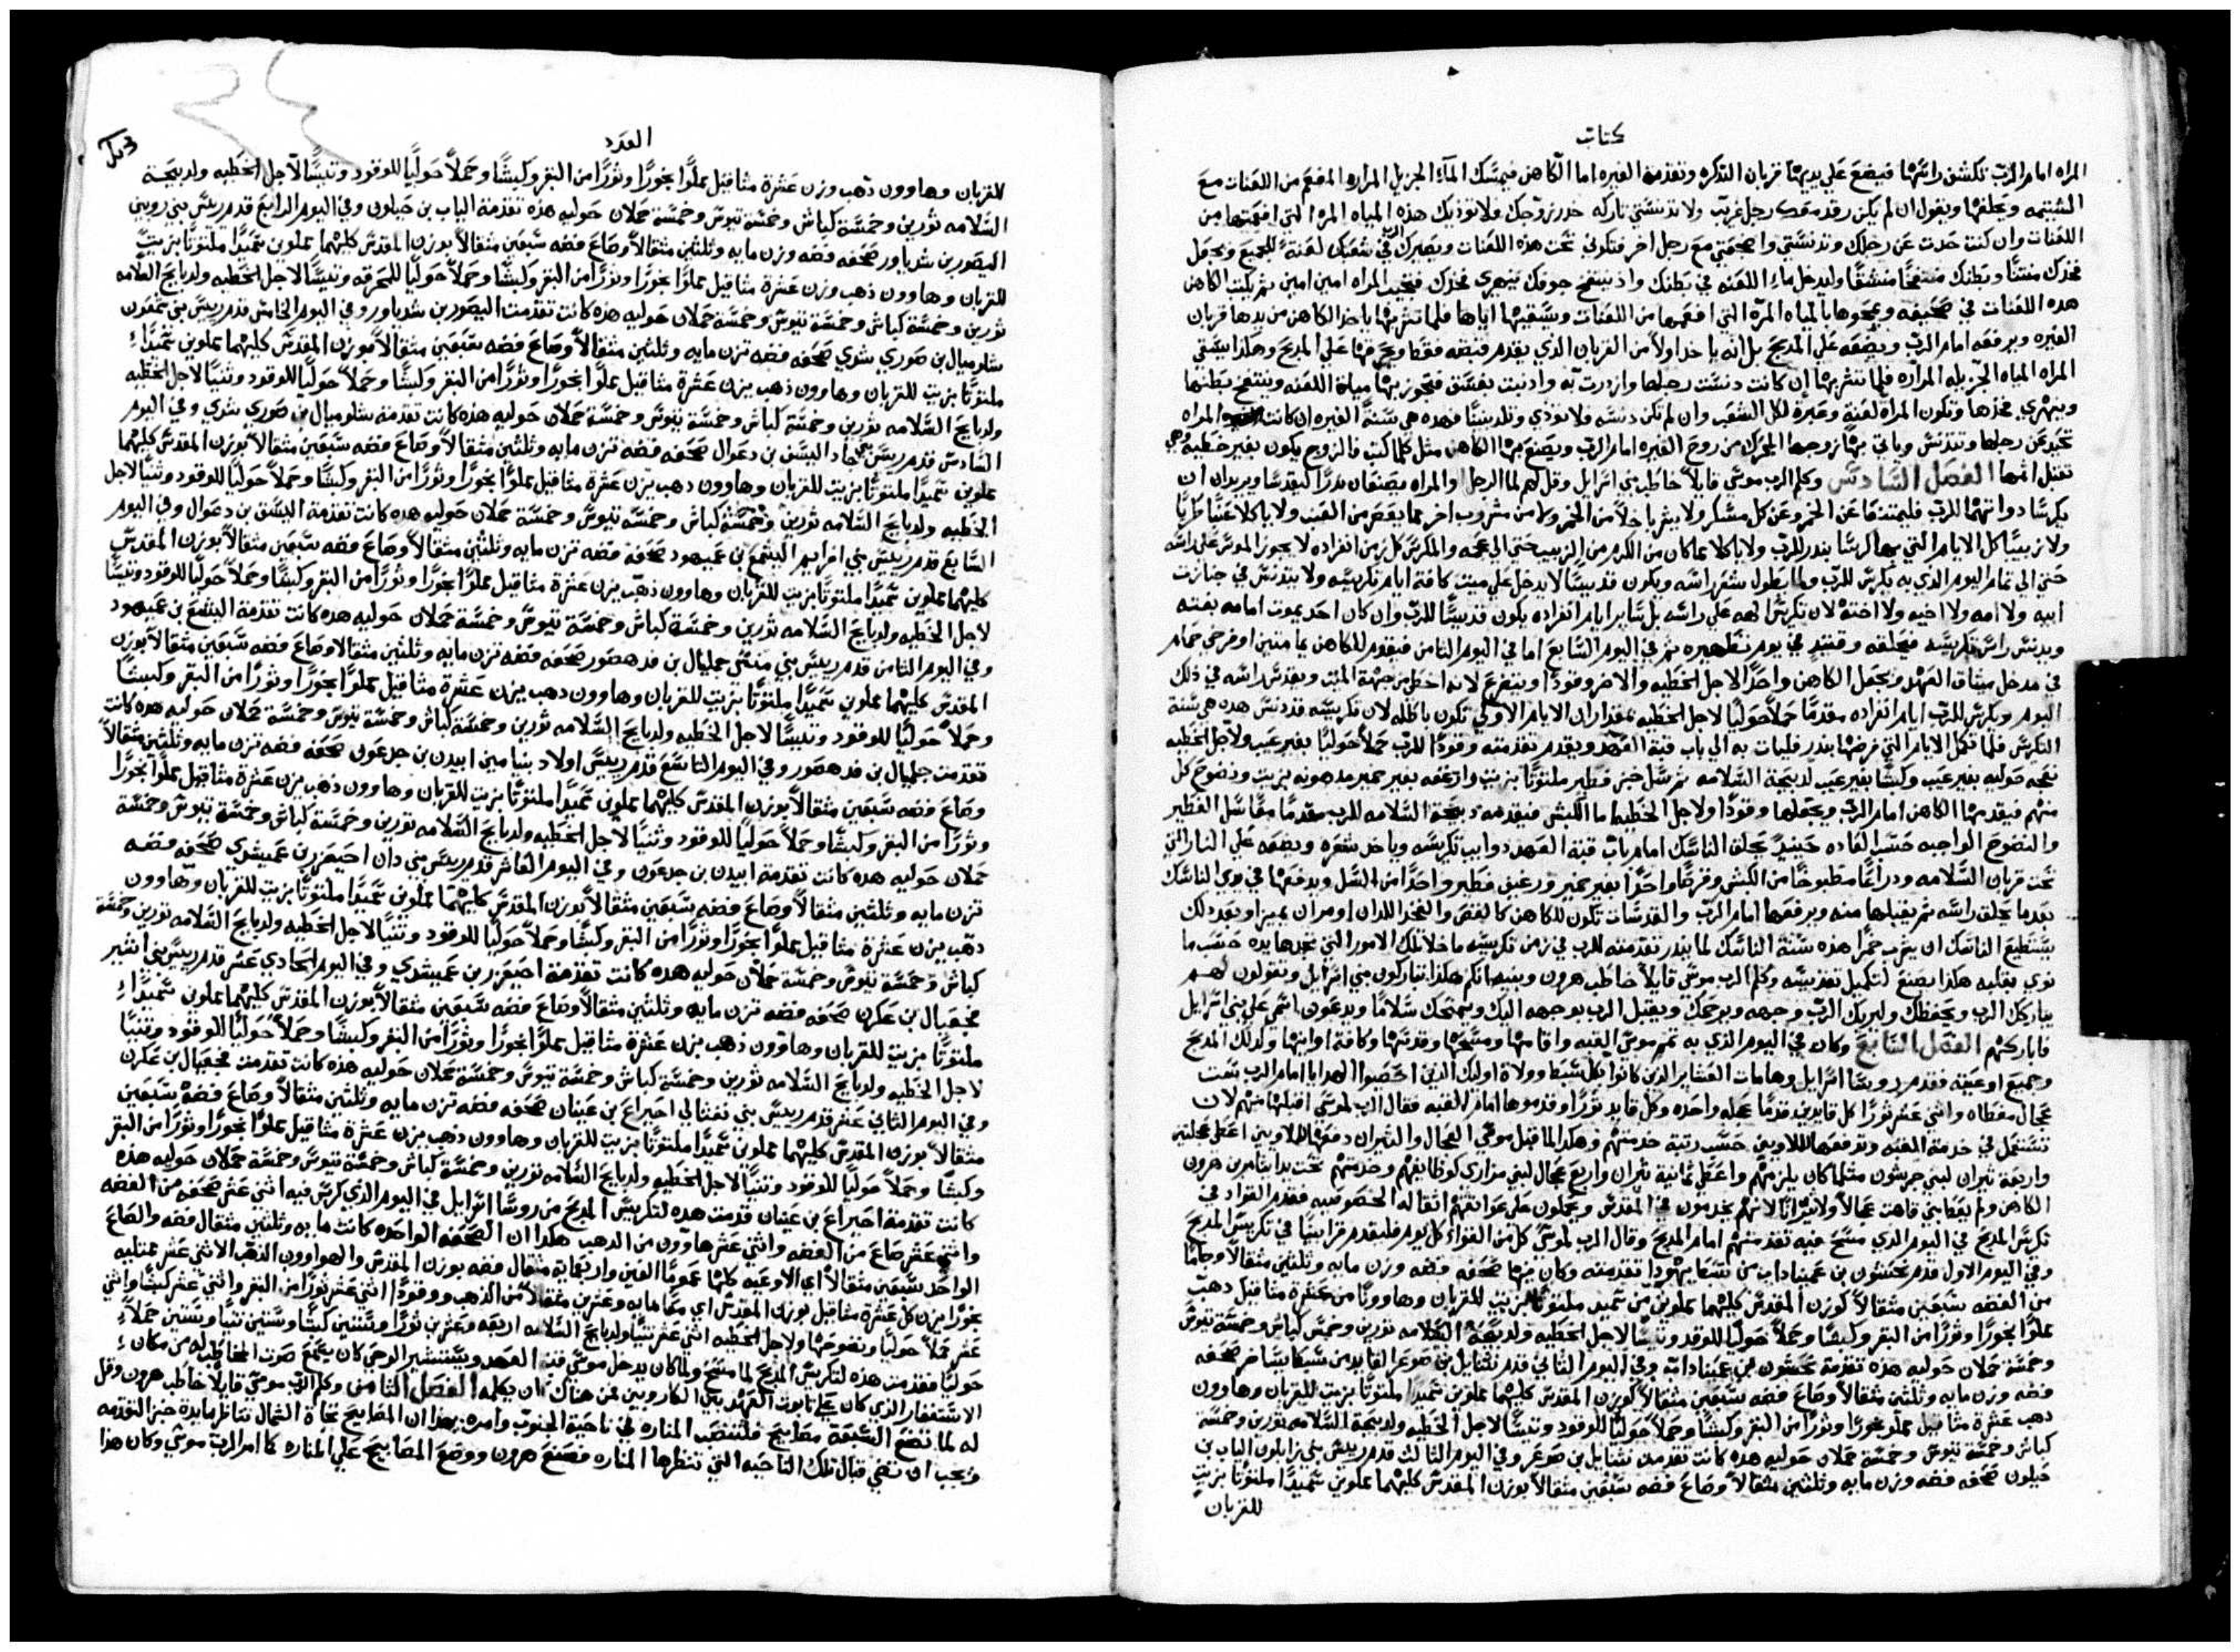 كتاب
المراه امام الرب تكشف راسها فيضع على يديها قربان التذكره وتقدمة الغيره اما الكاهن فيمسك الماء الجزيل المراره المفعم من اللعنات مع
الشتيمه ويحلفها ويقول ان لم يكن رقد معك رجل غريب ولا تدنستي تاركه خدر زوجك ولا توذيك هذه المياه المره التي افعمتها من
اللعنات وان كنت حدت عن رجلك وتدنستي واضجعتي مع رجل اخر فتكوني تحت هذه اللعنات ويصيرك الرب في شعبك لعنة للجميع ويجعل
فخذك منتنا وبطنك منتفخا منشقا وليدخل ماء اللعنه في بطنك واذ ينتفخ جوفك يتهري فخذك فتجيب المراه امين امين ثم يكتب الكاهن
هذه اللعنات في صحيفه ويمحوها بالمياه المرة التي افعمها من اللعنات ويسقيها اياها فلما تشربها ياخذ الكاهن من يدها قربان
الغيره ويرفعه امام الرب ويضعه على المذبح بل انه ياخذ اولا من القربان الذي يقدم قبضه فقط ويحرقها على المذبح وهكذا يسقي
المراه المياه الجزيله المراره فلما تشربها ان كانت دنست رجلها وازدرت به واذنبت بفسق فتجوز بها مياه اللعنه وينتفخ بطنها
ويتهري فخذها وتكون المراة لعنة وعبرة لكل الشعب وان لم تكن دنسه فلا توذي وتلد بنينا فهذه هي سنة الغيره ان كانت المراه
تحيد عن رجلها وتتدنس وياتي بها زوجها المحرك من روح الغيره امام الرب ويصنع بها الكاهن مثل كلما كتب فالزوج يكون بغير خطيه وهي
تقبل اثمها الفصل السادس وكلم الرب موسى قايلا خاطب بني اسرايل وقل لهم لما الرجل او المراه يصنعان نذرا ليتقدسا ويريدان ان
يكرسا ذواتهما للرب فليمتنعا عن الخمر وعن كل مسكر ولا يشربا خلا من الخمر ولا من مشروب اخر مما يعصر من العنب ولا ياكلا عنبا طريا
ولا زبيبا كل الايام التي بها كرسا بنذر للرب ولا ياكلا مما كان من الكرم من الزبيب حتي الي عجمه والمكرس كل زمن انفراده لا يجوز الموس على راسه
حتي الى تمام اليوم الذي به يكرس للرب ولما يطول شعر راسه ويكون قديسا لا يدخل على ميت كافة ايام تكريسه ولا يتدنس في جنازت
ابيه ولا امه ولا اخيه ولا اخته لان تكريس الهه على راسه بل ساير ايام انفراده يكون قديسا للرب وان كان احد يموت امامه بغته
ويدنس راس تكريسه فيحلقه وقتيذ في يوم تطهيره ثم في اليوم السابع اما في اليوم الثامن فيقدم للكاهن يمامتين او فرخي حمام
في مدخل ميثاق العهد ويجعل الكاهن واحدا لاجل الخطيه والاخر وقودا ويتضرع لانه اخطي من جهة الميت ويقدس راسه في ذلك
اليوم ويكرس للرب ايام انفراده مقدما حملا حوليا لاجل الخطيه بمقدار ان الايام الاولى تكون باطله لان تكريسه قد دنس هذه هي سنة
التكريس فلما تكمل الايام التي فرضها بنذر فليات به الى باب قبة العهد ويقدم تقدمته وقودا للرب حملا حوليا بغير عيب ولاجل الخطيه
نعجه حوليه بغير عيب وكبشا بغير عيب لذبيحة السلامه ثم سل خبز فطير ملتوتا بزيت وارغفه بغير خمير مدهونه بزيت ونضوح كل
منهم فيقدمها الكاهن امام الرب ويجعلها وقودا ولاجل الخطيه اما الكبش فيقدمه ذبيحة السلامه للرب مقدما معا سل الفطير
والنضوح الواجبه حسب العاده حينيذ يحلق الناسك امام باب قبة العهد دوايب تكريسه وياخذ شعره ويضعه على النار التي
تحت قربان السلامه ودراعا مطبوخا من الكبش وقرصا واحدا بغير خمير ورغيف فطير واحدا من السل ويدفعها في يدي الناسك
بعدما يحلق راسه ثم يقبلها منه ويرفعها امام الرب والقدسات تكون للكاهن كالقص والفخذ اللذان اومر ان يميزا وبعد ذلك
يستطيع الناسك ان يشرب خمرا هذه سنة الناسك لما ينذر تقدمته للرب في زمن تكريسه ما خلا تلك الامور التي تجدها يده حسب ما
نوي بقلبه هكذا يصنع لتكميل تقديسه وكلم الرب موسى قايلا خاطب هرون وبنيه انكم هكذا تباركون بني اسرايل وتقولون لهم
يباركك الرب ويحفظك وليريك الرب وجهه ويرحمك ويقبل الرب بوجهه اليك ويمنحك سلاما ويدعون اسمي على بني اسرايل
فاباركهم الفصل السابع وكان في اليوم الذي به تمم موسى القبه واقامها ومسحها وقدسها وكافة اوانيها وكذلك المذبح
وجميع اوعيته فقدم روسا اسرايل وهامات العشاير الذين كانوا بكل سبط وولاة اوليك الذين احصيوا الهدايا امام الرب ست
عجال مغطاه واثني عشر ثورا كل قايدين قدما عجله واحده وكل قايد ثورا وقدموها امام القبه فقال الرب لموسى اقبلها منهم لان
تستعمل في خدمة القبه وتدفعها للاويين حسب رتبة خدمتهم وهكذا لما قبل موسى العجال والثيران دفعها للاويين اعطى عجلتين
واربعة ثيران لبني جرشون مثلما كان يلزمهم واعطى ثمانية ثيران واربع عجال لبني مراري كوظايفهم وخدمتهم تحت يد ايثامر بن هرون
الكاهن ولم يعط بني قاهت عجالا ولا ثيرانا لانهم يخدمون في المقدس ويحملون على عواتقهم اثقاله الخصوصيه فقدم القواد في
تكريس المذبح في اليوم الذي مسح فيه تقدمتهم امام المذبح وقال الرب لموسى كل من القواد كل يوم فليقدم قرابينا في تكريس المذبح
وفي اليوم الاول قدم نحشون بن عميناداب من سبط يهودا تقدمته وكان فيها صحفه فضه وزن مايه وثلثين مثقالا وجاما
من الفضه سبعين مثقالا كوزن المقدس كليهما مملوين من سميد ملتوتا بزيت للقربان وهاوونا من عشرة مثاقيل ذهب
مملوا بخورا وثورا من البقر وكبشا وحملا حوليا للوقود وتيسا لاجل الخطيه ولذبيحة السلامه ثورين وخمس كباش وخمسة تيوس
وخمسة حملان حوليه هذه تقدمة نحشون بن عميناداب وفي اليوم الثاني قدم نثنايل بن صوغر القايد من سبط ايساخر صحفه
فضه وزن مايه وثلثين مثقالا وصاع فضه سبعين مثقالا كوزن المقدس كليهما مملوين سميدا ملتوتا بزيت للقربان وهاوون
ذهب عشرة مثاقيل مملو بخورا وثورا من البقر وكبشا وحملا حوليا للوقود وتيسا لاجل الخطيه ولذبيحة السلامه ثورين وخمسة
كباش وخمسة تيوس وخمسة حملان حوليه هذه كانت تقدمت نثنايل بن صوغر وفي اليوم الثالث قدم ريس بني زابلون الياب بن
حيلون صحفه فضه وزن مايه وثلثين مثقالا وصاع فضه سبعين مثقالا بوزن المقدس كليهما مملوين سميدا ملتوتا بزيت
للقربان
العدد
للقربان وهاوون ذهب وزن عشرة مثاقيل مملوا بخورا وثورا من البقر وكبشا وحملا حوليا للوقود وتيسا لاجل الخطيه ولذبيحة
السلامه ثورين وخمسة كباش وخمسة تيوس وخمسة حملان حوليه هذه تقدمة الياب بن حيلون وفي اليوم الرابع قدم ريس بني روبين
اليصور بن شدياور صحفه فضه وزن مايه وثلثين مثقالا وصاع فضه سبعين مثقالا بوزن المقدس كليهما مملوين سميدا ملتوتا بزيت
للقربان وهاوون ذهب وزن عشرة مثاقيل مملوا بخورا وثورا من البقر وكبشا وحملا حوليا للمحرقه وتيسا لاجل الخطيه ولذبايح السلامه
ثورين وخمسة كباش وخمسة تيوس وخمسة حملان حوليه هذه كانت تقدمت اليصور بن شدياور وفي اليوم الخامس قدم ريس بني شمعون
شلوميال بن صوري شدي صحفه فضه تزن مايه وثلثين مثقالا وصاع فضه سبعين مثقالا بوزن المقدس كليهما مملوين سميدا
ملتوتا بزيت للقربان وهاوون ذهب يزن عشرة مثاقيل مملوا بخورا وثورا من البقر وكبشا وحملا حوليا للوقود وتيسا لاجل الخطيه
ولذبايح السلامه ثورين وخمسة كباش وخمسة تيوس وخمسة حملان حوليه هذه كانت تقدمة شلوميال بن صوري شدي وفي اليوم
السادس قدم ريس بني جاد اليسف بن دعوال صحفه فضه تزن مايه وثلثين مثقالا وصاع فضه سبعين مثقالا بوزن المقدس كليهما
مملوين سميدا ملتوتا بزيت للقربان وهاوون ذهب يزن عشرة مثاقيل مملوا بخورا وثورا من البقر وكبشا وحملا حوليا للوقود وتيسا لاجل
الخطيه ولذبايح السلامه ثورين وخمسة كباش وخمسه تيوس وخمسة حملان حوليه هذه كانت تقدمة اليسف بن دعوال وفي اليوم
السابع قدم ريس بني افرايم اليشمع بن عميهود صحفة فضه تزن مايه وثلثين مثقالا وصاع فضه سبعين مثقالا بوزن المقدس
كليهما مملوين سميدا ملتوتا بزيت للقربان وهاوون ذهب يزن عشرة مثاقيل مملوا بخورا وثورا من البقر وكبشا وحملا حوليا للوقود وتيسا
لاجل الخطيه ولذبايح السلامه ثورين وخمسة كباش وخمسة تيوس وخمسة حملان حوليه هذه كانت تقدمة اليشمع بن عميهود
وفي اليوم الثامن قدم ريس بني منسي جمليال بن فدهصور صحفه فضه تزن مايه وثلثين مثقالا وصاع فضه سبعين مثقالا بوزن
المقدس كليهما مملوين سميدا ملتوتا بزيت للقربان وهاوون ذهب يزن عشرة مثاقيل مملوا بخورا وثورا من البقر وكبشا
وحملا حوليا للوقود وتيسا لاجل الخطيه ولذبايح السلامه ثورين وخمسة كباش وخمسة تيوس وخمسة حملان حوليه هذه كانت
تقدمت جمليال بن فدهصور وفي اليوم التاسع قدم ريس اولاد بنيامين ابيدن بن جدعون صحفه فضه تزن مايه وثلثين مثقالا
وصاع فضه سبعين مثقالا بوزن المقدس كليهما مملوين سميدا ملتوتا بزيت للقربان وهاوون ذهب يزن عشرة مثاقيل مملوا بخورا
وثورا من البقر وكبشا وحملا حوليا للوقود وتيسا لاجل الخطيه ولذبايح السلامه ثورين وخمسة كباش وخمسة تيوس وخمسة
حملان حوليه هذه كانت تقدمة ابيدن بن جدعون وفي اليوم العاشر قدم ريس بني دان احيعزر بن عميشدي صحفه فضه
تزن مايه وثلثين مثقالا وصاع فضه سبعين مثقالا بوزن المقدس كليهما مملوين سميدا ملتوتا بزيت للقربان وهاوون
ذهب يزن عشرة مثاقيل مملوا بخورا وثورا من البقر وكبشا وحملا حوليا للوقود وتيسا لاجل الخطيه ولذبايح السلامه ثورين وخمسة
كباش وخمسة تيوس وخمسة حملان حوليه هذه كانت تقدمة احيعزر بن عميشدي وفي اليوم الحادي عشر قدم ريس بني اشير
فجعيال بن عكرن صحفه فضه تزن مايه وثلثين مثقالا وصاع فضه سبعين مثقالا بوزن المقدس كليهما مملوين سميدا
ملتوتا بزيت للقربان وهاوون ذهب يزن عشرة مثاقيل مملوا بخورا وثورا من البقر وكبشا وحملا حوليا للوقود وتيسا
لاجل الخطيه ولذبايح السلامه ثورين وخمسة كباش وخمسة تيوس وخمسة حملان حوليه هذه كانت تقدمت فجعيال بن عكرن
وفي اليوم الثاني عشر قدم ريس بني نفتالي احيراع بن عينان صحفه فضه تزن مايه وثلثين مثقالا وصاع فضه سبعين
مثقالا بوزن المقدس كليهما مملوين سميدا ملتوتا بزيت للقربان وهاوون ذهب يزن عشرة مثاقيل مملوا بخورا وثورا من البقر
وكبشا وحملا حوليا للوقود وتيسا لاجل الخطيه ولذبايح السلامه ثورين وخمسة كباش وخمسة تيوس وخمسة حملان حوليه هذه
كانت تقدمة احيراع بن عينان قدمت هذه لتكريس المذبح من روسا اسرايل في اليوم الذي كرس فيه اثني عشر صحفه من الفضه
واثني عشر صاع من الفضه واثني عشر هاوون من الذهب هكذا ان الصحفه الواحده كانت مايه وثلثين مثقال فضه والصاع
الواحد سبعين مثقالا اي الاوعيه كلها عموما الفين واربعمايه مثقال فضه بوزن المقدس والهواوون الذهب الاثني عشر ممتليه
بخورا يزن كل عشرة مثاقيل بوزن المقدس اي معا مايه وعشرين مثقالا من الذهب ووقودا اثني عشر ثورا من البقر واثني عشر كبشا واثني
عشر حملا حوليا ونضوحها ولاجل الخطيه اثني عشر تيسا ولذبايح السلامه اربعه وعشرين ثورا وستين كبشا وستين تيسا وستين حملا
حوليا فقدمت هذه لتكريس المذبح لما مسح ولما كان يدخل موسى قبة العهد ويستشير الوحي كان يسمع صوت المخاطب له من مكان
الاستغفار الذي كان على تابوت العهد بين الكاروبين فمن هناك كان يكلمه الفصل الثامن وكلم الرب موسى قايلا خاطب هرون وقل
له لما تضع السبعة مصابيح فلتنتصب المناره في ناحية الجنوب وامره بهذا ان المصابيح تجاة الشمال تناظر مايدة خبز التقدمه
ويجب ان تضي قبال تلك الناحيه التي تنظرها المناره فصنع هرون ووضع المصابيح على المناره كما امر الرب موسى وكان هذا